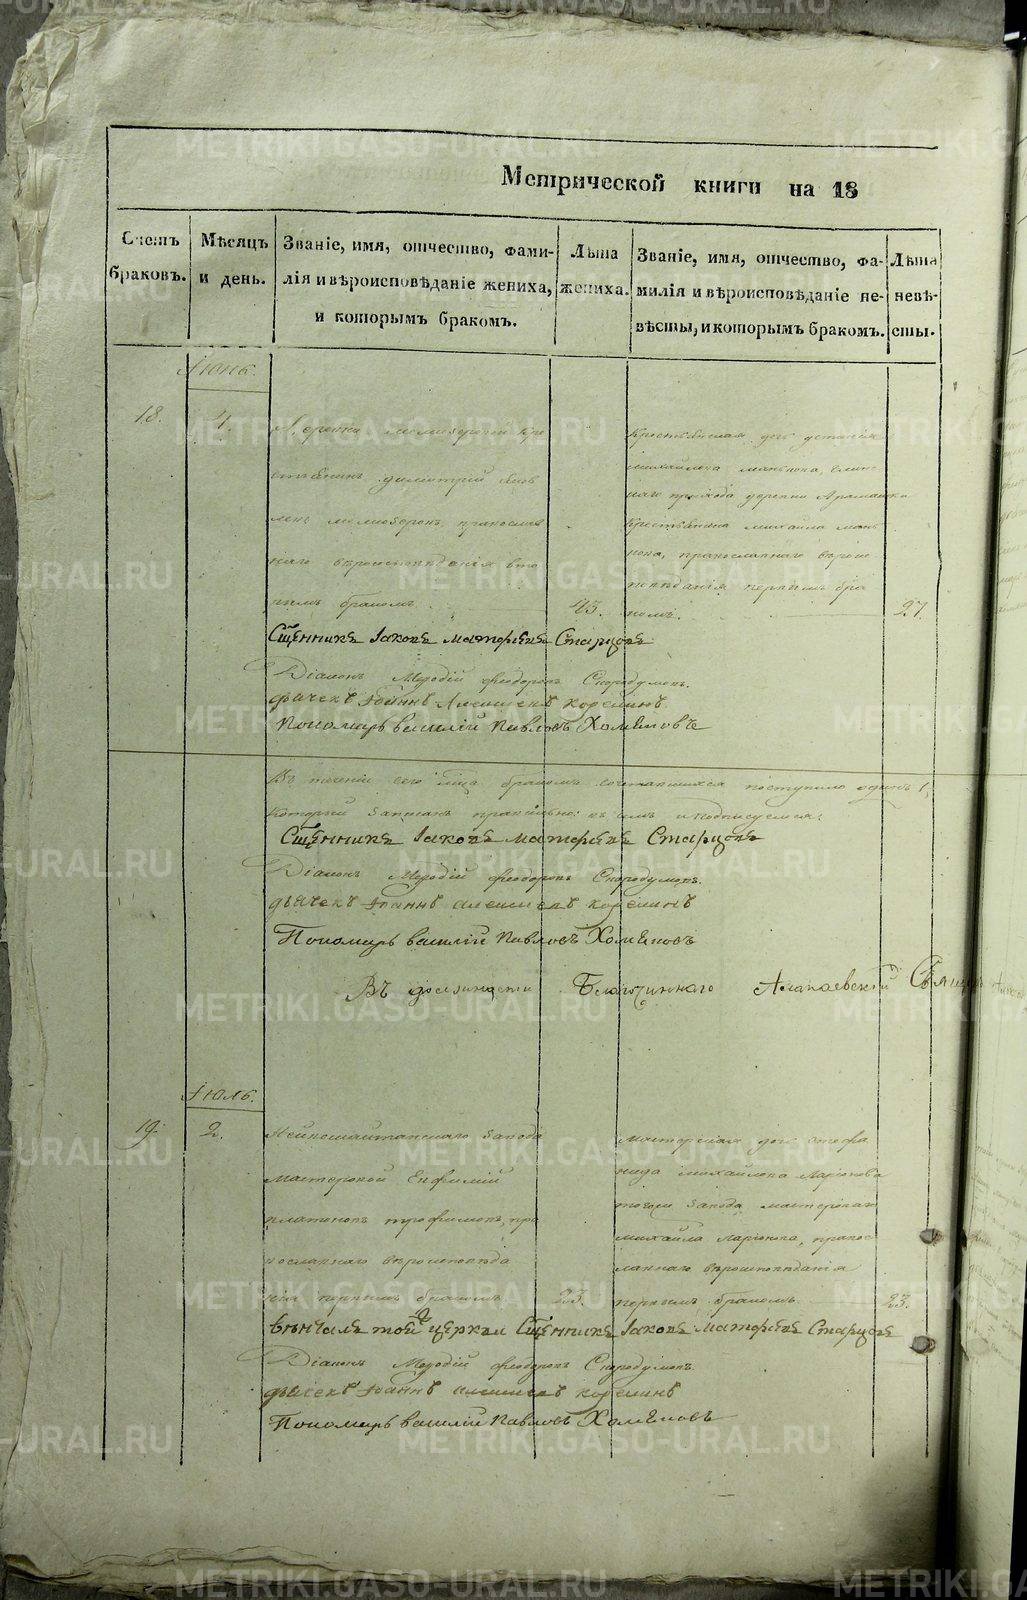 Метрической книги на 18
Счетъ браковъ.
Мѣсяцъ и день.
Званіе, имя, отчество, фами-
лія и вѣроисповѣданіе жениха,
и которымъ бракомъ.
Лѣта
жениха.
Званіе, имя, отчество, фа-
милія и вѣроисповѣданіе не-
вѣсты, и которымъ бракомъ.
Лѣта
невѣ-
сты.
Іюнь.
18.
4.
кре
стьянинъ димитрій
православ
наго вѣроисповѣданія вто
рымъ бракомъ
45.
Крестьянская дочь устинія
михайлова
наго прихода деревни Арамашки
Крестьянина михаила
православнаго вѣрои
сповѣданія первымъ бра
комъ.
27.
Сщенникъ Іаковъ матфѣевъ Старцовъ
Діаконъ Меѳодій феодоровъ Скородумовъ.
дьячекъ Іоаннъ Алексѣевъ
Пономарь василій Павловъ Хомяковъ
Въ теченіи сего мца бракомъ сочетавшихся поступило одинъ 1,
который записанъ правильно: въ чемъ и подписуемся:
Сщенникъ Іаковъ матфѣевъ Старцовъ
Діаконъ Меѳодій феодоровъ Скородумовъ.
дьячекъ Іоаннъ алексѣевъ
Пономарь василій Павловъ Хомяковъ
Въ должности Благочиннаго Алапаевскій Свящ
Іюль.
19.
2.
Нейвошайтанскаго завода
мастеровой Евфимій
платоновъ трофимовъ, пра
вославнаго вѣроисповѣда
нія первымъ бракомъ
23.
мастерская дочь стефа
нида михайлова Ларіонова
тогоже завода мастероваго
михаила Ларіонова, правос
лавнаго вѣроисповѣданія
первымъ бракомъ.
23.
вѣнчалъ той церкви Сщенникъ Іаковъ Матфѣевъ Старцовъ
Діаконъ Меѳодій феодоровъ Скородумовъ.
дьячекъ Іоаннъ алексѣевъ
Пономарь василій Павловъ Хомяковъ
METRIKI.GASO-URAL.RU